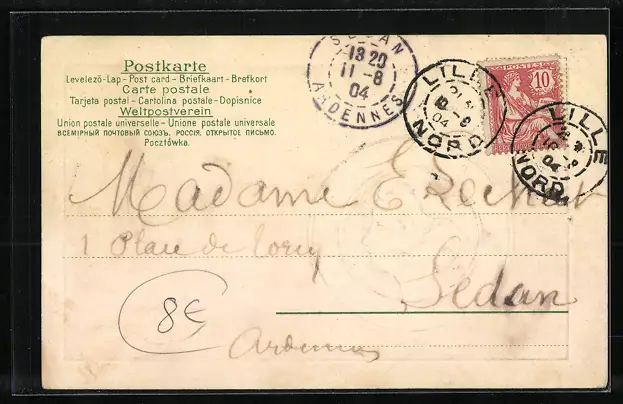 Postkarte
Levelező-Lap - Post card - Briefkaart - Brefkort
Carte postale
Tarjeta postal - Cartolina postale - Dopisnice
Weltpostverein
Union postale universelle - Unione postale universale
ВСЕМІРНЫЙ ПОЧТОВЫЙ СОЮЗЪ. РОССІЯ. ОТКРЫТОЕ ПИСЬМО.
Pocztówka.
SEDAN
13 20
11 - 8
04
ARDENNES
LILLE
04
NORD
POSTES
10
LILLE
04
NORD
Madame
1 Place de
Sedan
Ardennes
8€